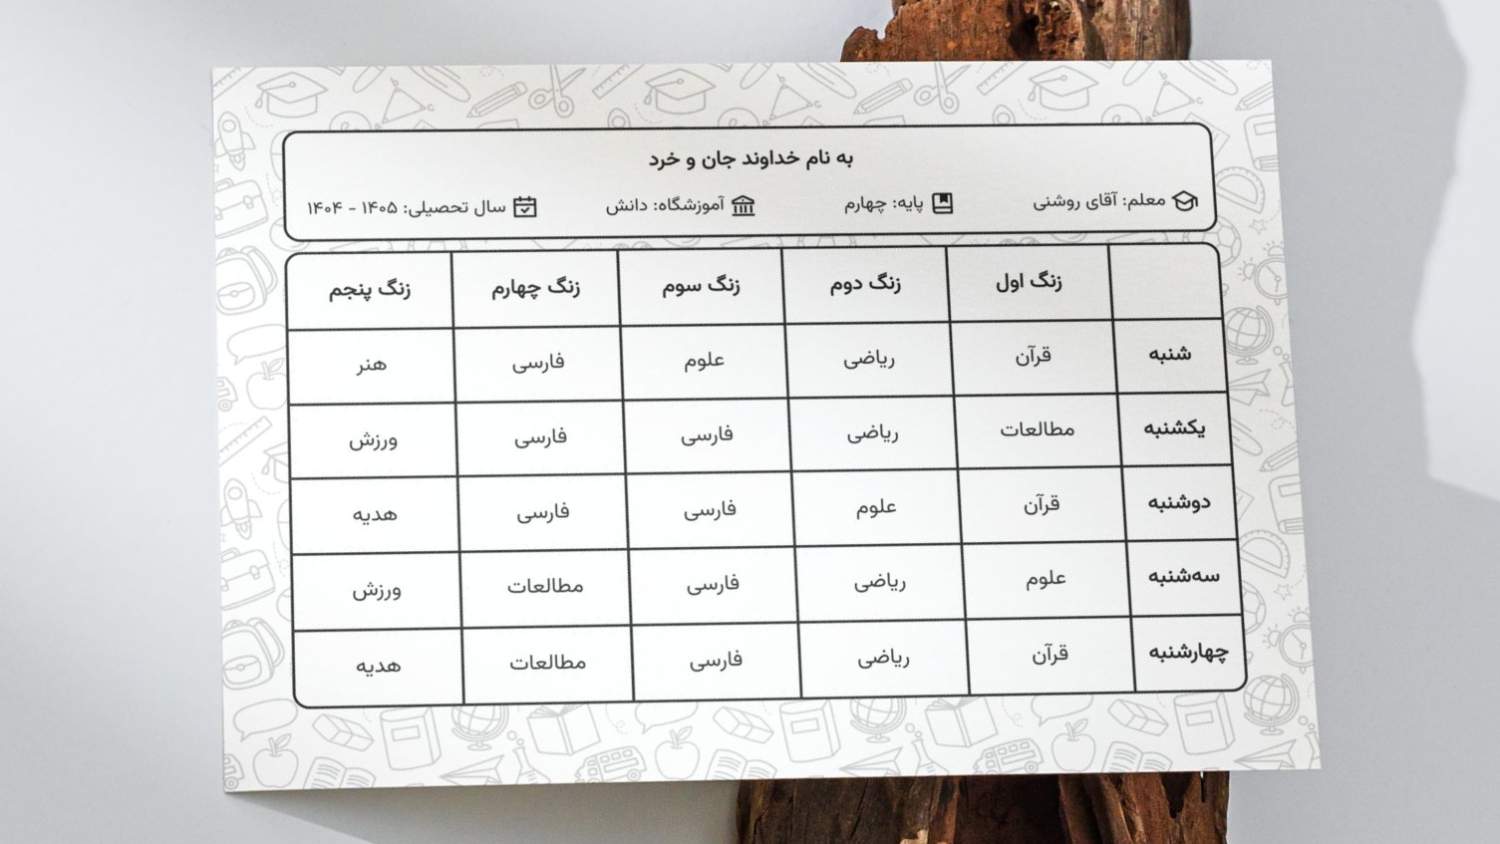 به نام خداوند جان و خرد
معلم: آقای روشنی پایه: چهارم آموزشگاه: دانش سال تحصیلی: ۱۴۰۵ - ۱۴۰۴
زنگ اول زنگ دوم زنگ سوم زنگ چهارم زنگ پنجم
شنبه قرآن ریاضی علوم فارسی هنر
یکشنبه مطالعات ریاضی فارسی فارسی ورزش
دوشنبه قرآن علوم فارسی فارسی هدیه
سه‌شنبه علوم ریاضی فارسی مطالعات ورزش
چهارشنبه قرآن ریاضی فارسی مطالعات هدیه